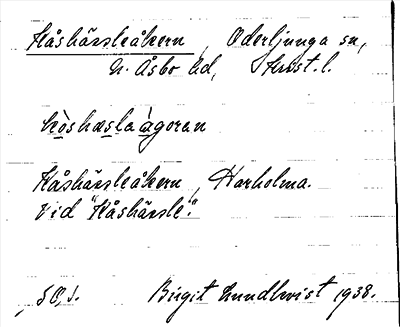 Håshärsleåkern, Oderljunga sn,
N. Åsbo hd, Krist. l.
hòshæslaàgoran
Håshärsleåkern, Harholma.
Vid "Håshärsle".
Birgit Lundkvist 1938.